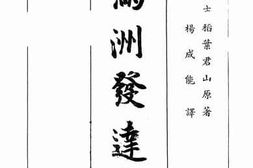 士 稻葉君山原著
楊成能譯
滿洲發達